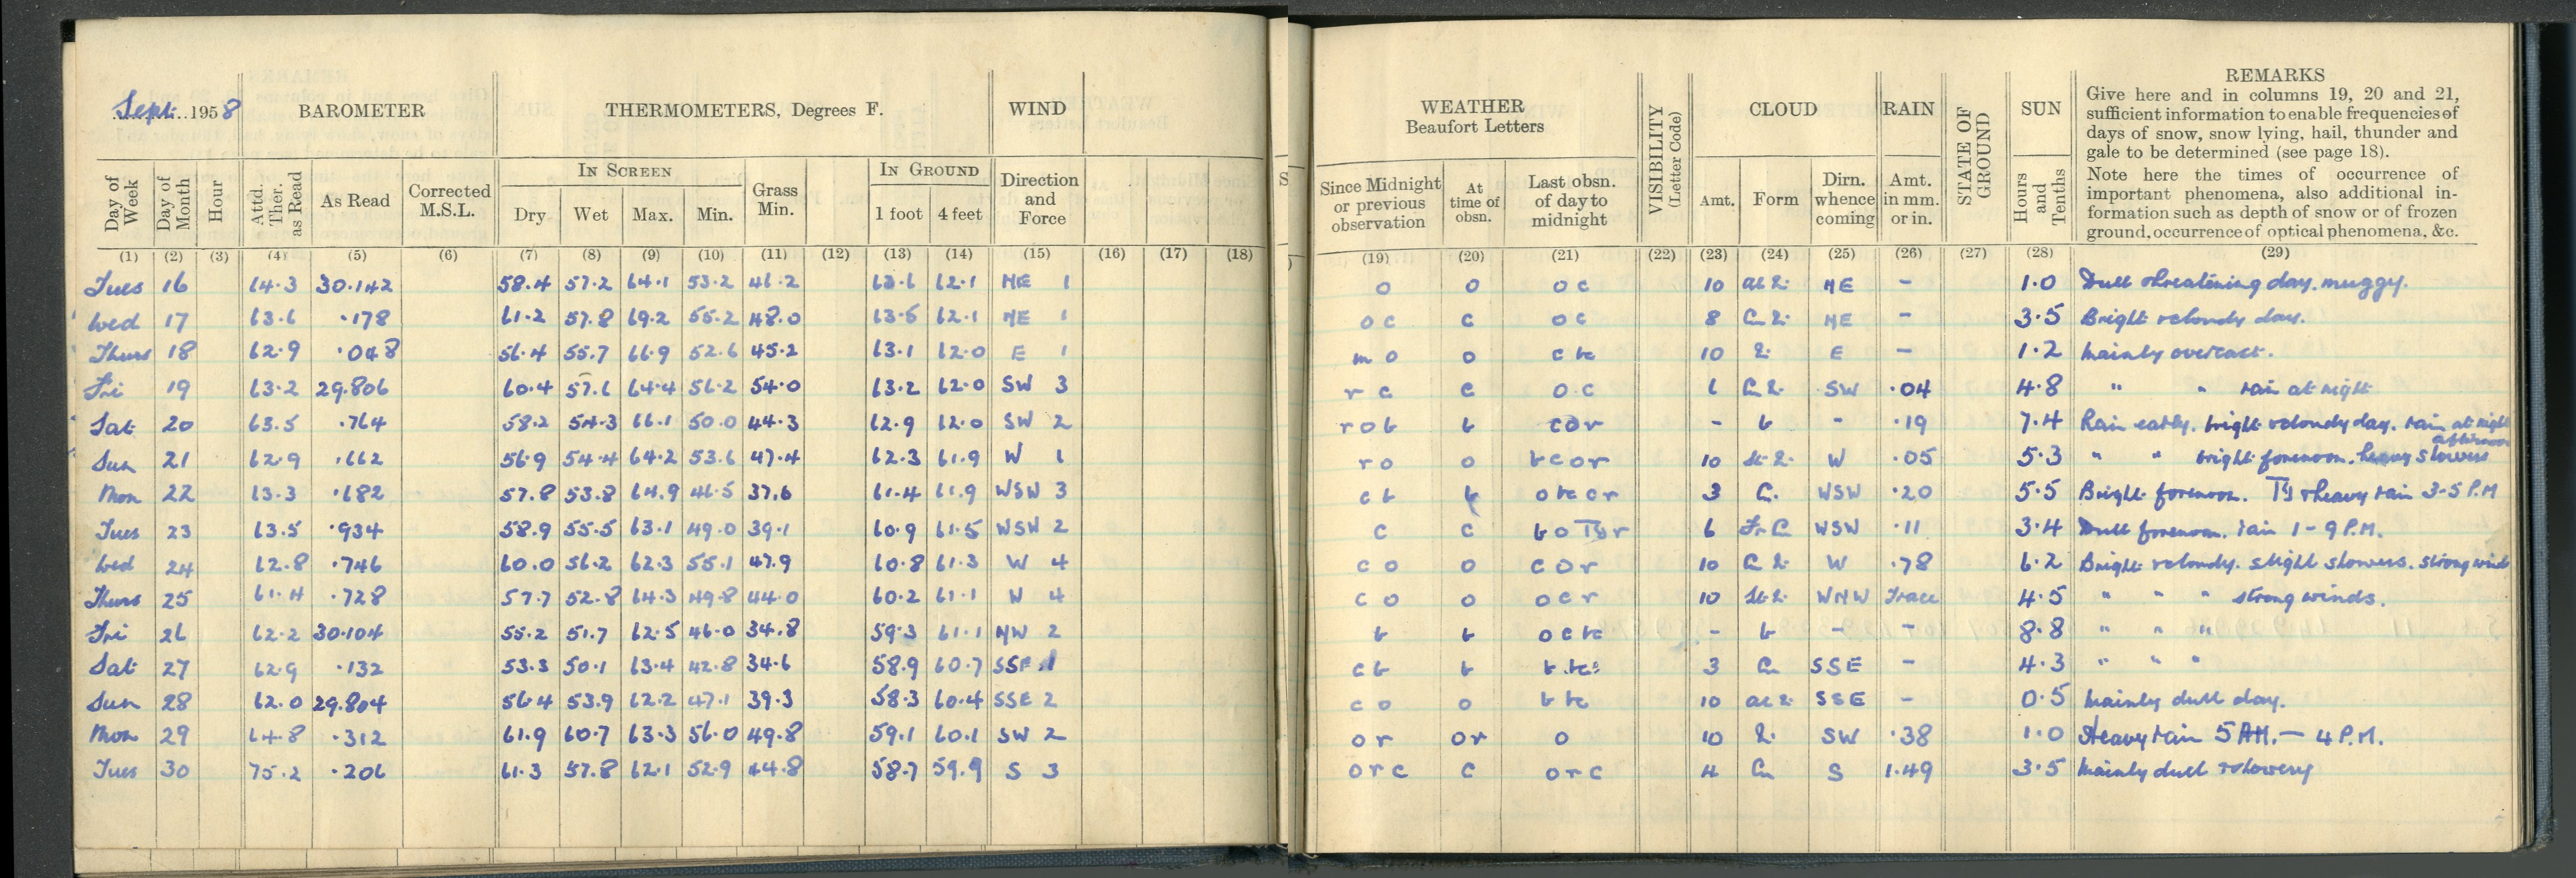 Sept. 1958 BAROMETER THERMOMETERS, Degrees F. WIND
IN SCREEN IN GROUND
Day of Week Day of Month Hour Attd. Ther. as Read As Read Corrected M.S.L. Dry Wet Max. Min. Grass Min. 1 foot 4 feet Direction and Force
(1) (2) (3) (4) (5) (6) (7) (8) (9) (10) (11) (12) (13) (14) (15) (16) (17) (18)
Tues 16 64.3 30.142 58.4 57.2 64.1 53.2 46.2 63.6 62.1 NE 1
Wed 17 63.6 .178 61.2 57.8 69.2 55.2 48.0 63.5 62.1 NE 1
Thurs 18 62.9 .048 56.4 55.7 66.9 52.6 45.2 63.1 62.0 E 1
Fri 19 63.2 29.806 60.4 57.6 64.4 56.2 54.0 63.2 62.0 SW 3
Sat 20 63.5 .764 58.2 54.3 66.1 50.0 44.3 62.9 62.0 SW 2
Sun 21 62.9 .662 56.9 54.4 64.2 53.6 47.4 62.3 61.9 W 1
Mon 22 63.3 .682 57.8 53.8 64.9 46.5 37.6 61.4 61.9 WSW 3
Tues 23 63.5 .934 58.9 55.5 63.1 49.0 39.1 60.9 61.5 WSW 2
Wed 24 62.8 .746 60.0 56.2 62.3 55.1 47.9 60.8 61.3 W 4
Thurs 25 61.4 .728 57.7 52.8 64.3 49.8 44.0 60.2 61.1 W 4
Fri 26 62.2 30.104 55.2 51.7 62.5 46.0 34.8 59.3 61.1 NW 2
Sat 27 62.9 .132 53.3 50.1 63.4 42.8 34.6 58.9 60.7 SSE 1
Sun 28 62.0 29.804 56.4 53.9 62.2 47.1 39.3 58.3 60.4 SSE 2
Mon 29 64.8 .312 61.9 60.7 63.3 56.0 49.8 59.1 60.1 SW 2
Tues 30 75.2 .206 61.3 57.8 62.1 52.9 44.8 58.7 59.9 S 3
WEATHER Beaufort Letters VISIBILITY (Letter Code) CLOUD RAIN STATE OF GROUND SUN REMARKS
Give here and in columns 19, 20 and 21,
sufficient information to enable frequencies of
days of snow, snow lying, hail, thunder and
gale to be determined (see page 18).
Note here the times of occurrence of
important phenomena, also additional in-
formation such as depth of snow or of frozen
ground, occurrence of optical phenomena, &c.
Since Midnight or previous observation At time of obsn. Last obsn. of day to midnight Amt. Form Dirn. whence coming Amt. in mm. or in. Hours and Tenths
(19) (20) (21) (22) (23) (24) (25) (26) (27) (28) (29)
o o oc 10 NE - 1.0 Dull threatening day. muggy.
oc c oc 8 NE - 3.5 Bright & cloudy day.
mo o c bc 10 E - 1.2 Mainly overcast.
rc c o.c 6 SW .04 4.8 " " rain at night
rob b cor - b - .19 7.4 Rain early. bright & cloudy day. rain at night
ro o bcor 10 W .05 5.3 " " bright forenoon. heavy showers afternoon
cb b 3 WSW .20 5.5 Bright forenoon. & heavy rain 3-5 P.M
c c 6 WSW .11 3.4 Dull forenoon. rain 1-9 P.M.
co o cor 10 W .78 6.2 Bright & cloudy. slight showers. strong wind
co o ocr 10 WNW Trace 4.5 " " " strong winds.
b b o c bc - b - - 8.8 " " "
cb b 3 SSE - 4.3 " " "
co o b bc 10 SSE - 0.5 Mainly dull day.
or or o 10 SW .38 1.0 Heavy rain 5 AM. - 4 P.M.
orc c orc 4 S 1.49 3.5 Mainly dull & showery